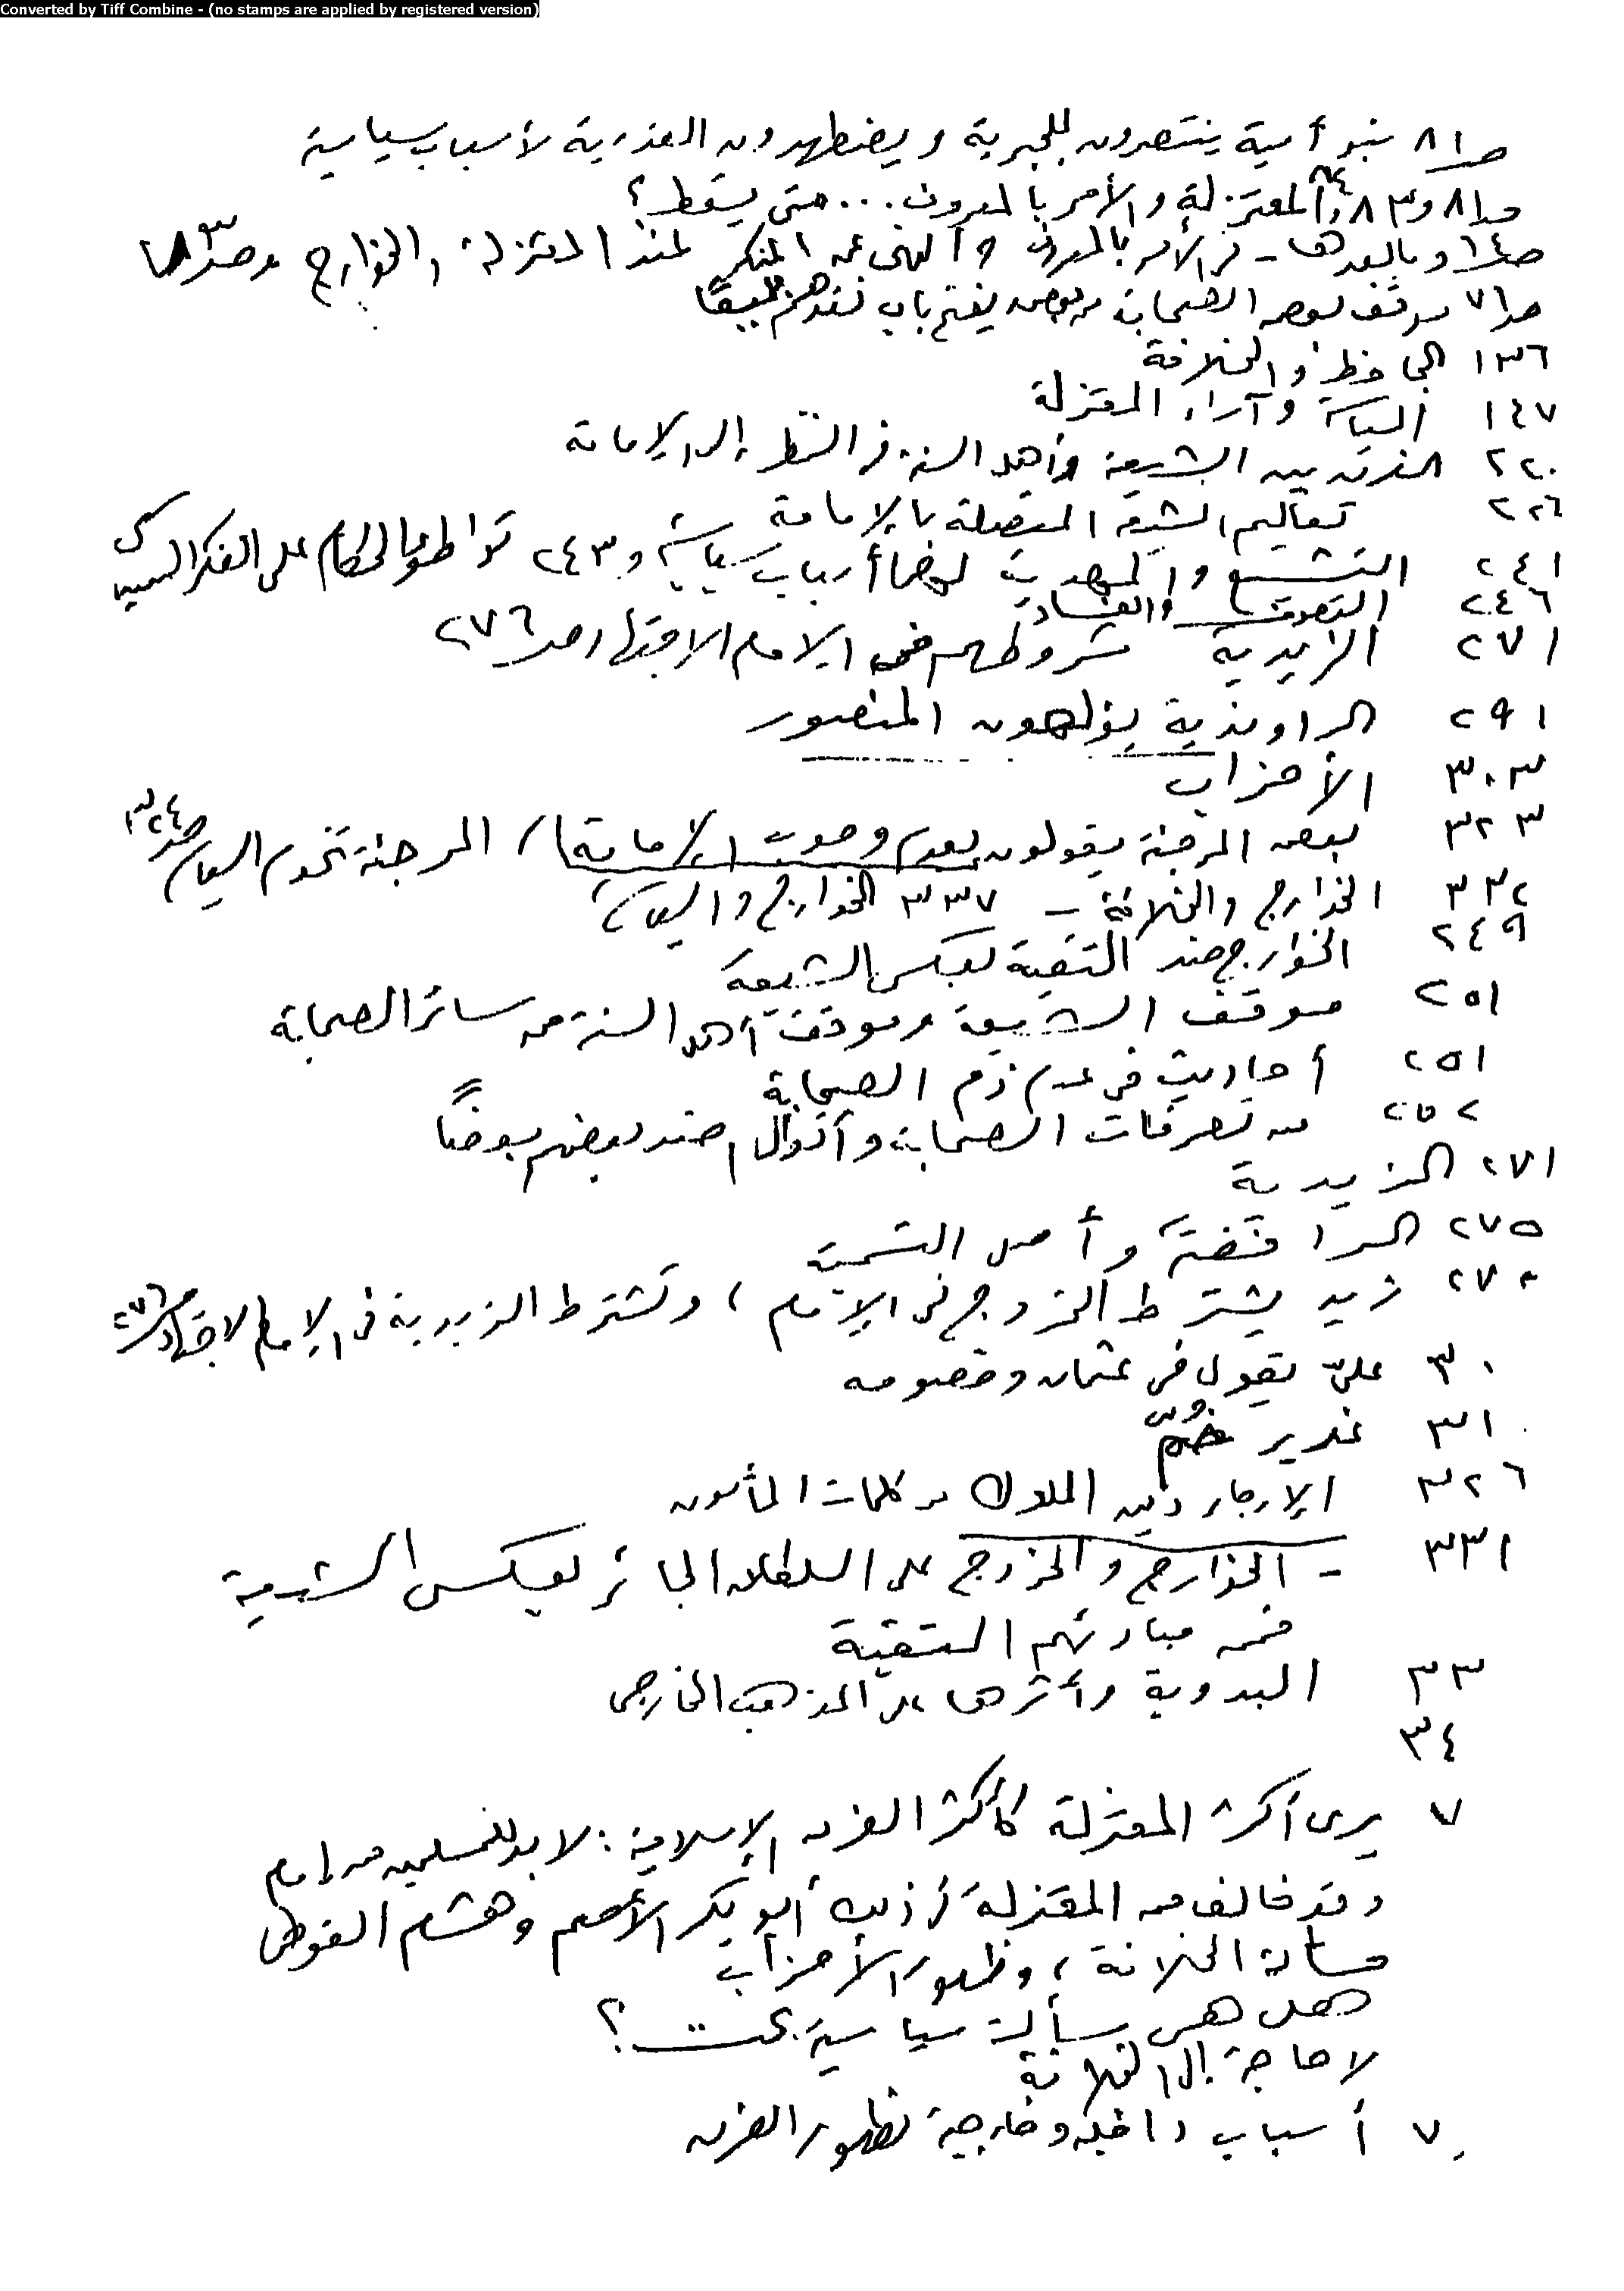 Converted by Tiff Combine - (no stamps are applied by registered version)
صـ ٨١ بنو أمية ينتصرون للجبرية ويضطهدون القدرية لأسباب سياسية
صـ ٨١ و٨٣ و٨٤ المعتزلة والأمر بالمعروف ... متى يسقط؟
صـ ٦٤ وما بعدها - في الأمر بالمعروف والنهي عن المنكر عند المعتزلة والخوارج وصـ
صـ ٧١ موقف بعض الصحابة من بعض يفتح باب نقدهم جميعًا
١٣٦ الجاحظ والخلافة
١٤٧ السياسة وآراء المعتزلة
٢٢٠ الفرق بين الشيعة وأهل السنة في النظر إلى الإمامة
٢٢٦ تعاليم الشيعة المتصلة بالإمامة
٢٤١ التشيع والمهدية لهما أسباب سياسية و٢٤٣ تواطؤ الحكام على الفكر السياسي
٢٤٦ التصوف والفساد
٢٧١ الزيدية شروطهم في الإمام الاجتهاد صـ ٢٧٦
٢٩١ الراوندية يؤلهون المنصور
٣٠٣ الأحزاب
٣٢٣ بعض المرجئة يقولون بعدم وجوب الإمامة / المرجئة تخدم السياسة صـ ٣٢٤
٣٣٢ الخوارج والخلافة - ٣٣٧ الخوارج والسياسة
٢٤٩ الخوارج ضد التقية بعكس الشيعة
٢٥١ موقف الشيعة وموقف أهل السنة من سائر الصحابة
٢٥١ أحاديث في عدم ذم الصحابة
٢٥٢ من تصرفات الصحابة وأقوالهم ضد بعضهم بعضًا
٢٧١ الزيدية
٢٧٥ الرافضة وأصل التسمية
٢٧٢ زيد يشترط الخروج في الإمام، وتشترط الزيدية في الإمام الاجتهاد صـ ٢٧٦
٣٠ عليّ يقول في عثمان وخصومه
٣١ غدير خُمّ
٣٢٦ الإرجاء دين الملوك من كلمات المأمون
٣٣١ - الخوارج والخروج على السلطان الجائر بعكس الشيعة
فمن مبادئهم التقية
٣٣ البدوية وأثرها على المذهب الخارجي
٣٤
٧ يرى أكثر المعتزلة كأكثر الفرق الإسلامية: لا بد للمسلمين من إمام
وقد خالف من المعتزلة في ذلك أبو بكر الأصم وهشام الفوطي
مسألة الخلافة، وظهور الأحزاب
هل هي مسألة سياسية بحت؟
لا حاجة إلى الخلافة
٧٠ أسباب داخلية وخارجية لظهور الفرق